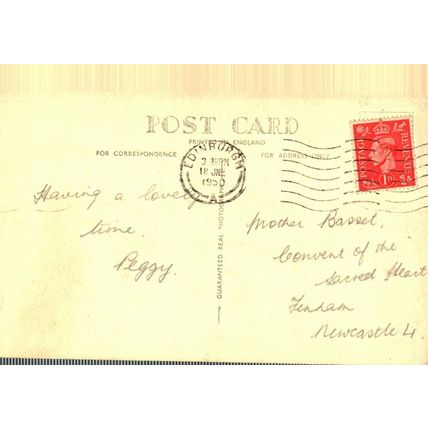 POST CARD
PRINTED IN ENGLAND
FOR CORRESPONDENCE
FOR ADDRESS ONLY
EDINBURGH
18 JNE
1950
A
POSTAGE
REVENUE
GUARANTEED REAL PHOTOGRAPH
Having a lovely
time.
Peggy.
Mother Bassel,
Convent of the
Sacred Heart
Fenham
Newcastle 4.